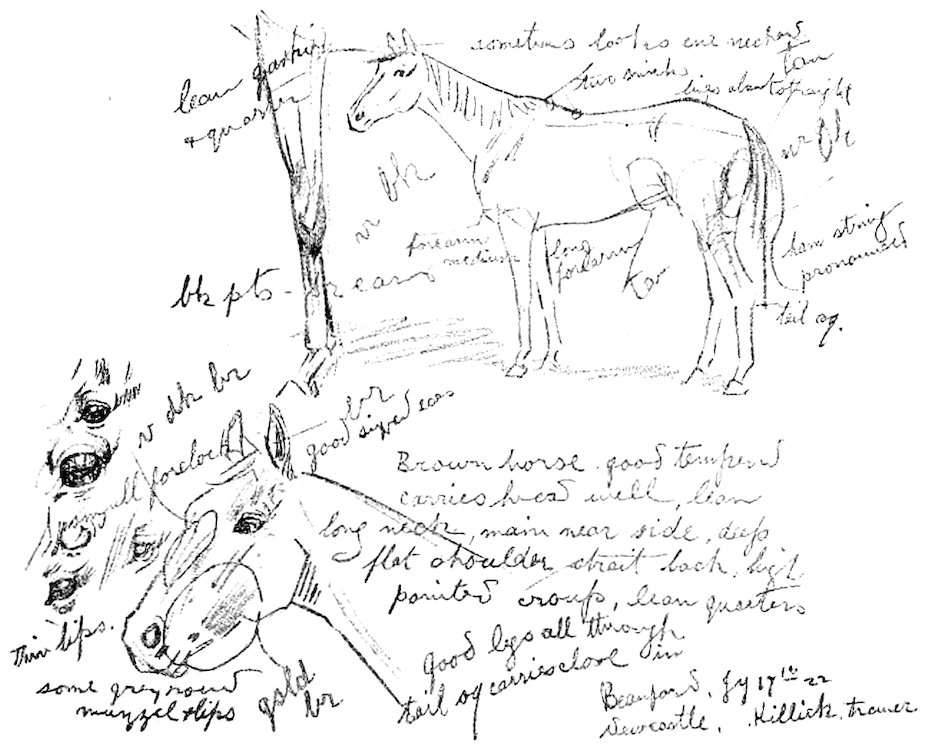 sometimes looks ewe necked
lean gaskin
& quarter
two swirls
tan
ligs about straight
br bk
br bk
forearm
medium
long
forearm
tan
ham string
pronounced
tail og.
bk pts - br ears
v dk br
br
good sized ears
small forelock
thin lips.
some grey round
muzzel & lips
gold
br
Brown horse. good tempered
carries head well, lean
long neck, main near side, deep
flat shoulder strait back, high
pointed croup, lean quarters
good legs all through
tail og carries close in
Beauford, Jy 17th 22
Newcastle, Killick, trainer